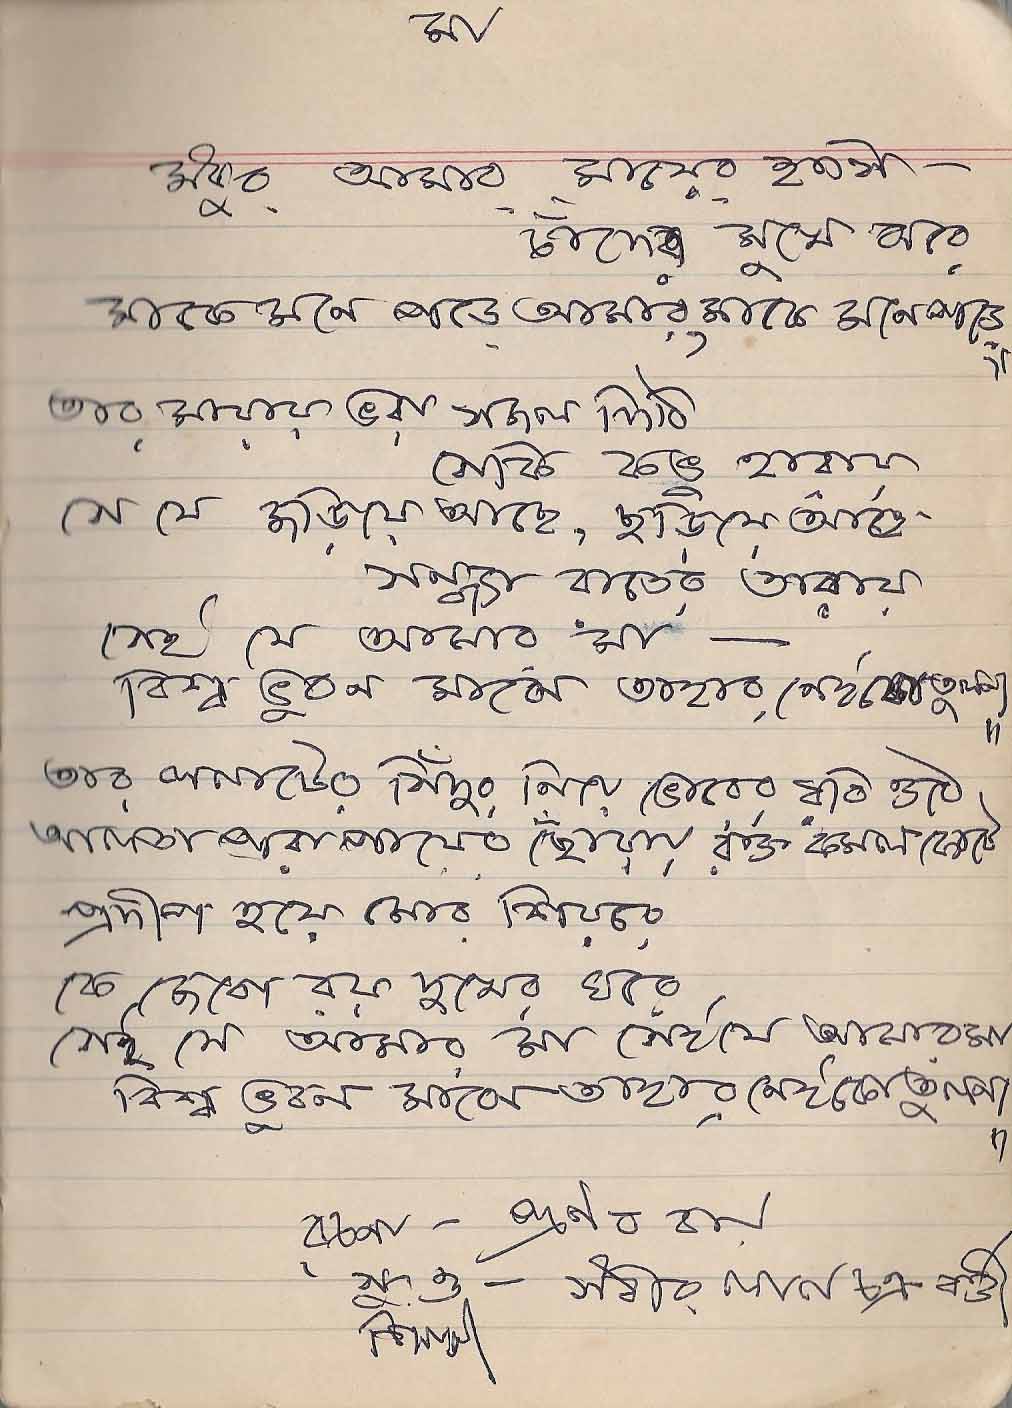 মা
মধুর আমার মায়ের হাসী —
চাঁদের মুখে ঝরে
মাকে মনে পড়ে আমার, মাকে মনে পড়ে ॥
তার মায়ায় ভরা সজল দিঠি
সেকি কভু হারায়
সে যে জড়িয়ে আছে, ছড়িয়ে আছে
সন্ধ্যা রাতের তারায়
সেই যে আমার মা —
বিশ্ব ভুবন মাঝে তাহার নেইকো তুলনা ॥
তার ললাটের সিঁদুর নিয়ে ভোরের রবি ওঠে
আলতা পরা পায়ের ছোঁয়ায় রক্ত কমল ফোটে
প্রদীপ হয়ে মোর শিয়রে
কে জেগে রয় দুখের ঘরে
সেই যে আমার মা সেই যে আমার মা
বিশ্ব ভুবন মাঝে তাহার নেইকো তুলনা ॥
রচনা — প্রণব রায়
সুর ও — সুধীর লাল চক্রবর্ত্তী